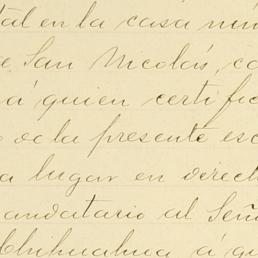 tal en la casa nún
e San Nicolás, co
á quien certific
o de la presente esc
a lugar en direct
andatario al Seño
Chihuahua á qu